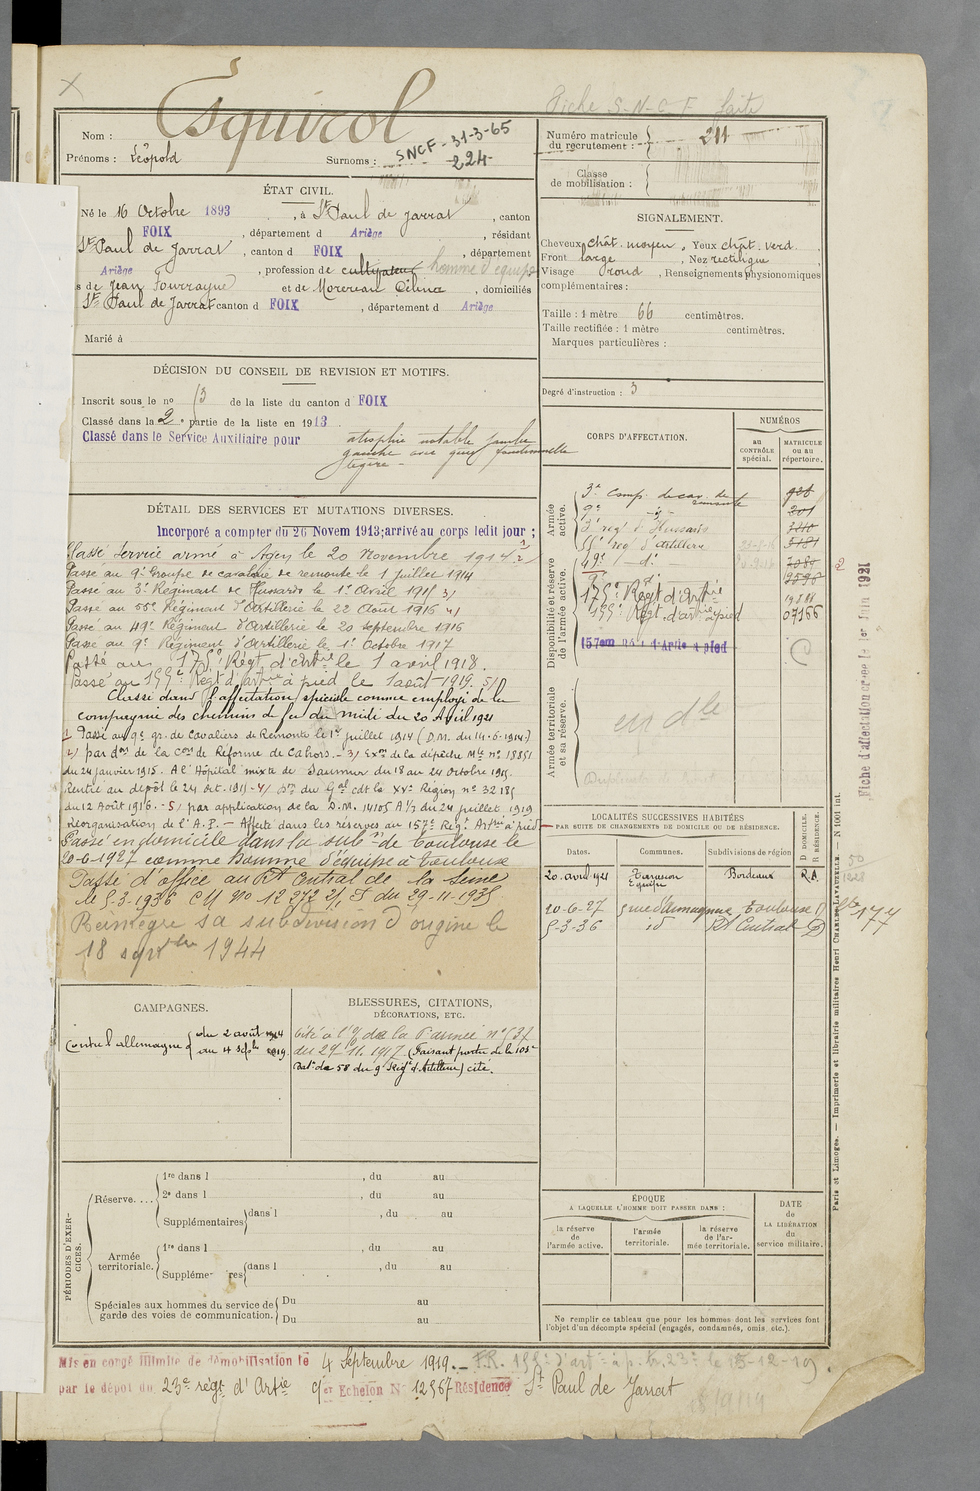 Fiche S-N-C-F faite
Nom : Esquirol
Prénoms : Léopold Surnoms : SNCF-31-3-65
-224-
Numéro matricule du recrutement : 211
Classe de mobilisation :
ÉTAT CIVIL.
Né le 16 Octobre 1893, à St Paul de Jarrat, canton
FOIX, département d Ariège, résidant
St Paul de Jarrat, canton d FOIX, département
Ariège, profession de cultivateur homme d'équipe
s de Jean et de Célina, domiciliés
St Paul de Jarrat canton d FOIX, département d Ariège
Marié à
SIGNALEMENT.
Cheveux chât. moyen. Yeux chât. verd.
Front large, Nez rectiligne
Visage rond, Renseignements physionomiques
complémentaires :
Taille : 1 mètre 66 centimètres.
Taille rectifiée : 1 mètre centimètres.
Marques particulières :
Degré d'instruction : 3
DÉCISION DU CONSEIL DE REVISION ET MOTIFS.
Inscrit sous le no 13 de la liste du canton d FOIX
Classé dans la 2e partie de la liste en 1913.
Classé dans le Service Auxiliaire pour atrophie notable jambe
gauche avec gêne fonctionnelle
légère -
DÉTAIL DES SERVICES ET MUTATIONS DIVERSES.
Incorporé a compter du 26 Novem 1913; arrivé au corps ledit jour;
Classé Service armé à Agen le 20 Novembre 1914 2/
Passé au 9e Groupe de cavalerie de remonte le 1 juillet 1914
Passé au 3e Régiment de Hussards le 1er Avril 1915 3/
Passé au 55e Régiment d'Artillerie le 22 Août 1916 4/
Passé au 49e Régiment d'Artillerie le 20 septembre 1916
Passé au 9e Régiment d'Artillerie le 1er Octobre 1917
Passé au 175e Régt d'Artie le 1 avril 1918.
Passé au 155e Régt d'artie à pied le 1 août 1919. 5/
Classé dans l'affectation spéciale comme employé de la
compagnie des chemins de fer du midi du 20 Avril 1921
1/ Passé au 9e gr. de Cavaliers de Remonte le 1er juillet 1914 (D.M. du 14-6-1914.)
2/ par don de la Con de Réforme de Cahors. - 3/ Exon de la dépêche Mle no 18851
du 24 janvier 1915. A l'Hôpital mixte de Saumur du 18 au 24 Octobre 1915.
Rentré au dépôt le 24 Oct. 1915 - 4/ On du Gal cdt la XVe Région no 32185
du 12 Août 1916. - 5/ par application de la D.M. 14105 A 1/2 du 24 juillet 1919
Réorganisation de l'A.P. - Affecté dans les réserves au 157e Régt Artie à pied
Passé en domicile dans la subon de Toulouse le
20-6-1927 comme homme d'équipe à Toulouse
Passé d'office au Rt Central de la Seine
le 5-3-1936 CM No 12272 2/1 T du 29-11-1935
Réintégré sa subdivision d'origine le
18 septbre 1944
CORPS D'AFFECTATION.
NUMÉROS
au CONTRÔLE spécial.
MATRICULE ou au répertoire.
Armée active.
3e Comp. de cav. de remonte 926
9e -d°- 201
3e régt d'Hussards
55e régt d'Artillerie 3181
49e - d° - 7080
9e
Disponibilité et réserve de l'armée active.
175e Régt d'Artie
155e Régt d'artie à pied 07366
157eme Régt d'Artie à pied
Armée territoriale et sa réserve.
Fiche d'affectation créée le 1er Juin 1921
LOCALITÉS SUCCESSIVES HABITÉES
PAR SUITE DE CHANGEMENTS DE DOMICILE OU DE RÉSIDENCE.
Dates. Communes. Subdivisions de région D DOMICILE. R RÉSIDENCE.
20 avril 1921 Tarascon Bordeaux R.A.
20-6-27 Toulouse D 177
5-3-36 id Rt Central D
CAMPAGNES.
Contre l'allemagne du 2 août 1914
au 4 septbre 1919.
BLESSURES, CITATIONS,
DÉCORATIONS, ETC.
Cité à l'O/ de la armée no 137
du 29-11-1917 (Faisant partie de la 101e
Bat de 58 du 9e Régt d'Artillerie) cité.
PÉRIODES D'EXERCICES.
Réserve....
1re dans l , du au
2e dans l , du au
Supplémentaires dans l , du au
Armée territoriale.
1re dans l , du au
Supplémentaires dans l , du au
Spéciales aux hommes du service de garde des voies de communication.
Du au
Du au
ÉPOQUE
A LAQUELLE L'HOMME DOIT PASSER DANS :
la réserve de l'armée active.
l'armée territoriale.
la réserve de l'armée territoriale.
DATE de LA LIBÉRATION du service militaire.
Ne remplir ce tableau que pour les hommes dont les services font
l'objet d'un décompte spécial (engagés, condamnés, omis etc.).
Paris et Limoges. — Imprimerie et librairie militaires Henri CHARLES-LAVAUZELLE. — N 1001 int.
Mis en congé illimité de démobilisation le 4 Septembre 1919. - F.R. 155e d'arte à p. 15-12-19.
par le dépôt du 23e régt d'Artie 9/er Echelon N° 12567 Résidence St Paul de Jarrat